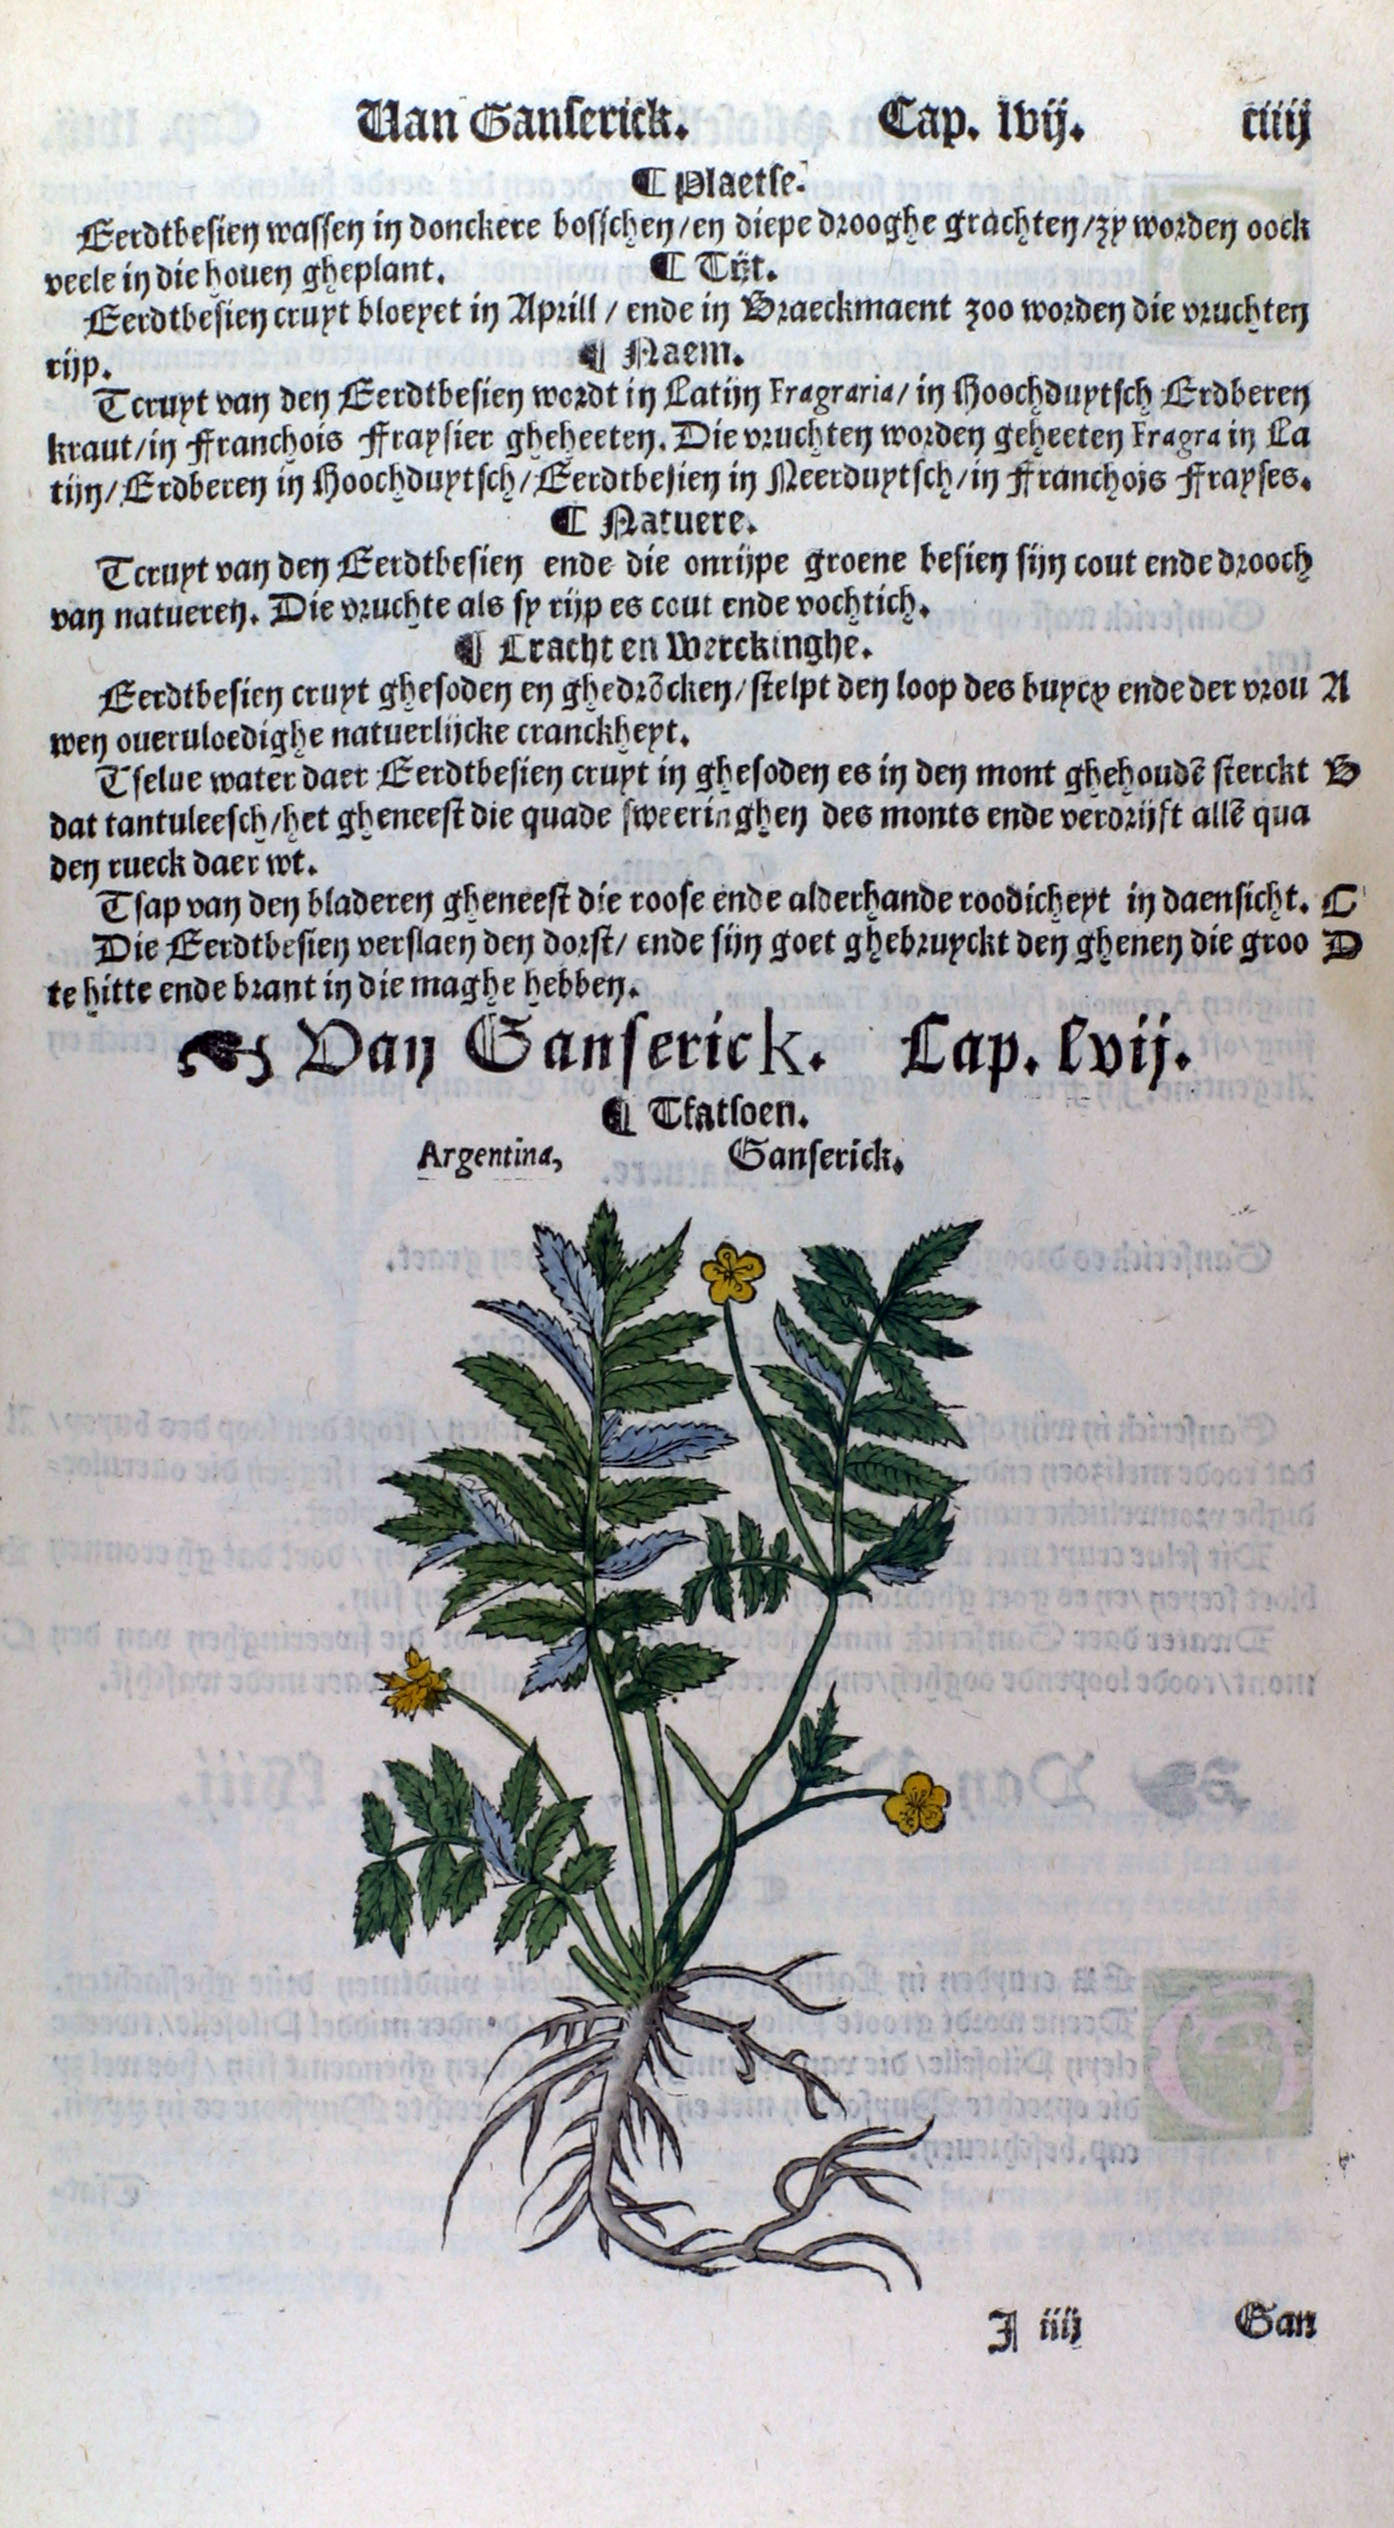 Van Ganserick. Cap. lvij. ciiij
¶ Plaetse.
Eerdtbesien wassen in donckere bosschen/en diepe drooghe grachten/zy worden oock
veele in die houen gheplant. ¶ Tijt.
Eerdtbesien cruyt bloeyet in Aprill / ende in Braeckmaent zoo worden die vruchten
rijp. ¶ Naem.
Tcruyt van den Eerdtbesien wordt in Latijn Fragraria/ in Hoochduytsch Erdberen
kraut/in Franchois Fraysier gheheeten. Die vruchten worden geheeten Fragra in La
tijn/Erdberen in Hoochduytsch/Eerdtbesien in Neerduytsch/in Franchois Frayses.
¶ Natuere.
Tcruyt van den Eerdtbesien ende die onrijpe groene besien sijn cout ende drooch
van natueren. Die vruchte als sy rijp es cout ende vochtich.
¶ Cracht en Werckinghe.
Eerdtbesien cruyt ghesoden en ghedrõcken/stelpt den loop des buycx ende der vrou A
wen oueruloedighe natuerlijcke cranckheyt.
Tselue water daer Eerdtbesien cruyt in ghesoden es in den mont ghehoudẽ sterckt B
dat tantuleesch/het gheneest die quade sweeringhen des monts ende verdrijft allẽ qua
den rueck daer wt.
Tsap van den bladeren gheneest die roose ende alderhande roodicheyt in daensicht. C
Die Eerdtbesien verslaen den dorst/ ende sijn goet ghebruyckt den ghenen die groo D
te hitte ende brant in die maghe hebben.
☙ Van Ganserick. Cap. lvij.
¶ Tfatsoen.
Argentina, Ganserick.
I iiij San